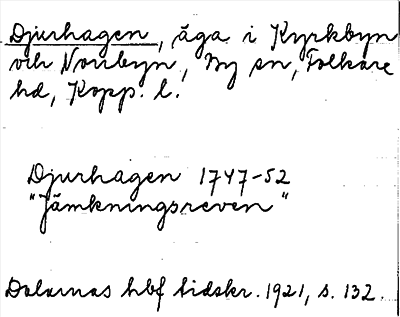 Djurhagen, äga i Kyrkbyn
och Norrbyn, By sn, Folkare
hd, Kopp. l.
Djurhagen 1747-52
"Jämkningsreven"
Dalarnas hbf tidskr. 1921, s. 132.